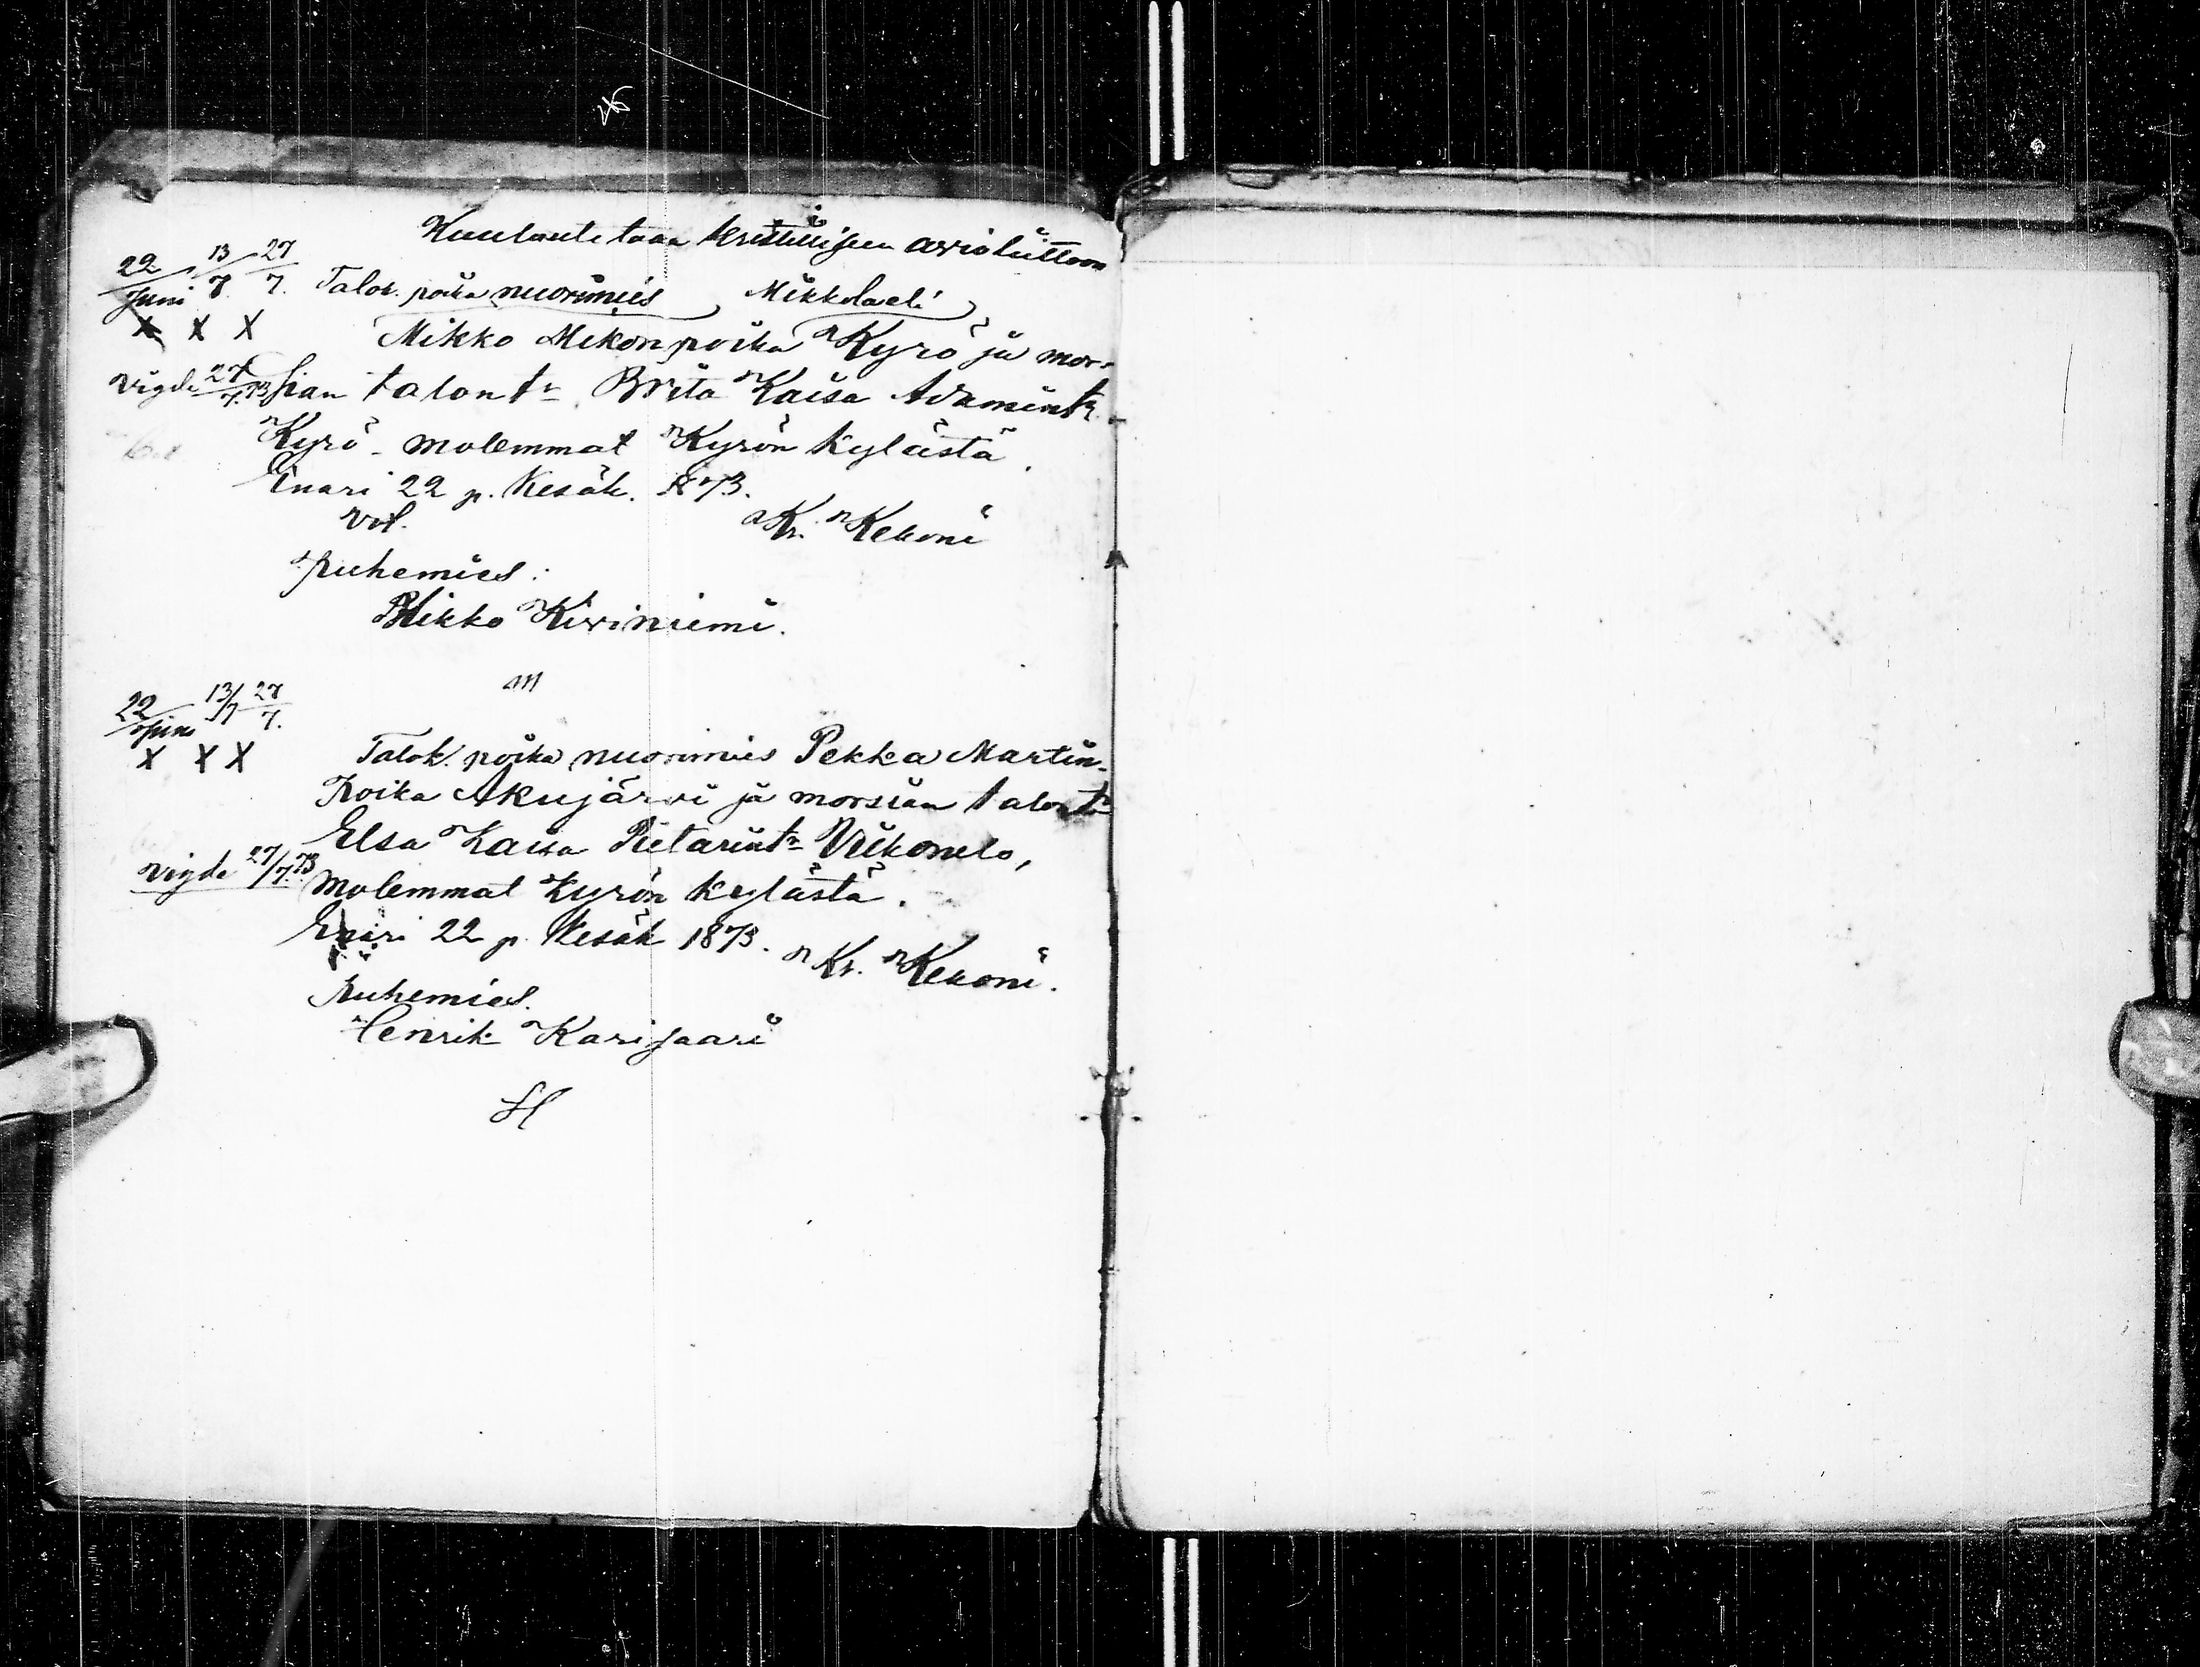 Kuulutetaan kristilliseen avioliittoon
22/Juni 13/7. 27/7. Talok. poika nuorimies Mikkolaeli
X X X Mikko Mikonpoika Kyrö ja mor-
Vigde 27/7.73 sian talon tr Brita Kaisa Adamintr.
Kyrö - molemmat Kyrön kylästä.
Enari 22 p. Kesäk. 1873.
Kr. Kekoni
puhemies:
Mikko Kiviniemi.
22/Juni 13/7 27/7.
X X X Talok. poika nuorimies Pekka Martin-
Poika Akujärvi ja morsian talontr
Elsa Kaisa Pietarintr
Vigde 27/7.73 molemmat Kyrön kylästä.
Enari 22 p. Kesäk 1873. Kr. Kekoni.
Puhemies.
Henrik Karijaari